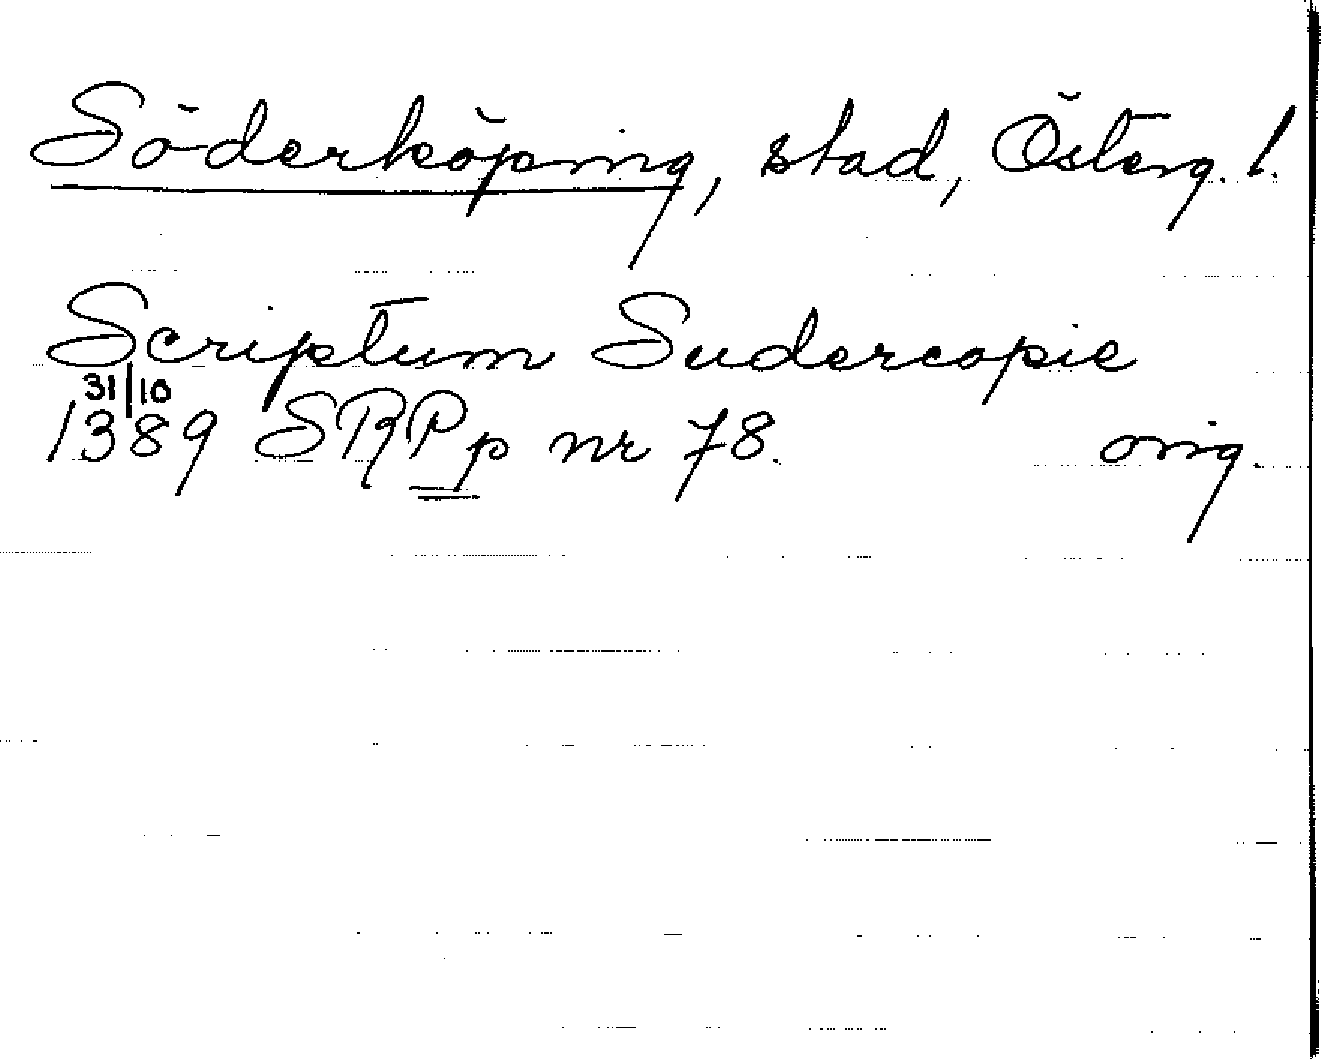 Söderköping, stad, Österg. l.
Scriptum Sudercopie
31/10
1389 SRPp nr 78. orig.